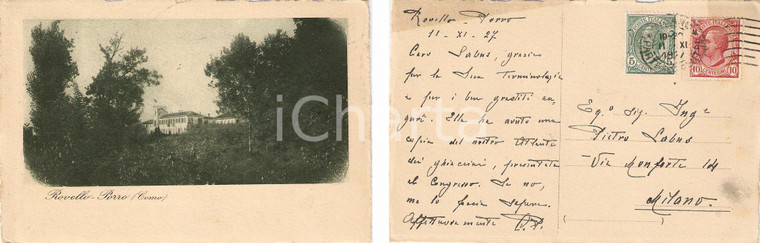 Rovello-Porro (Como)
iCharta
Rovello-Porro
11-XI-27
Caro Labus, grazie
per la Sua Terminologia
e per i ben graditi au,
guri. Ella ha avuto una
copia del nostro
dei ghiacciai, presentata
al Congresso. Se no,
me lo faccia sapere.
Affettuosamente
Eg.º Sig. Ingº
Pietro Labus
Via Monforte 14
Milano.
5
10